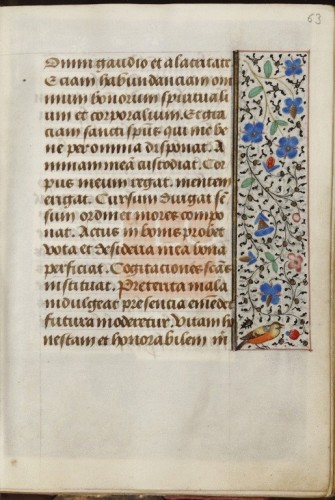 63
Omni gaudio et alacritate
Et iam habundanciam om
nium bonorum spiritualiu
um et corporalium. Et gra
ciam sancti spūs qui me be
ne per omnia disponat. A
nimam meā custodiat. Cor
pus meum regat. mentem
erigat. Cursum dirigat se
sum ordin et mores compo
nat. Actus in bonis probet
vota et desideria mea bona
perficiat. Cogitationes scās
instituat. Preterita mala
indulgeat presencia emēdet
futura moderetur. Vitam ho
nestam et honorabilem m